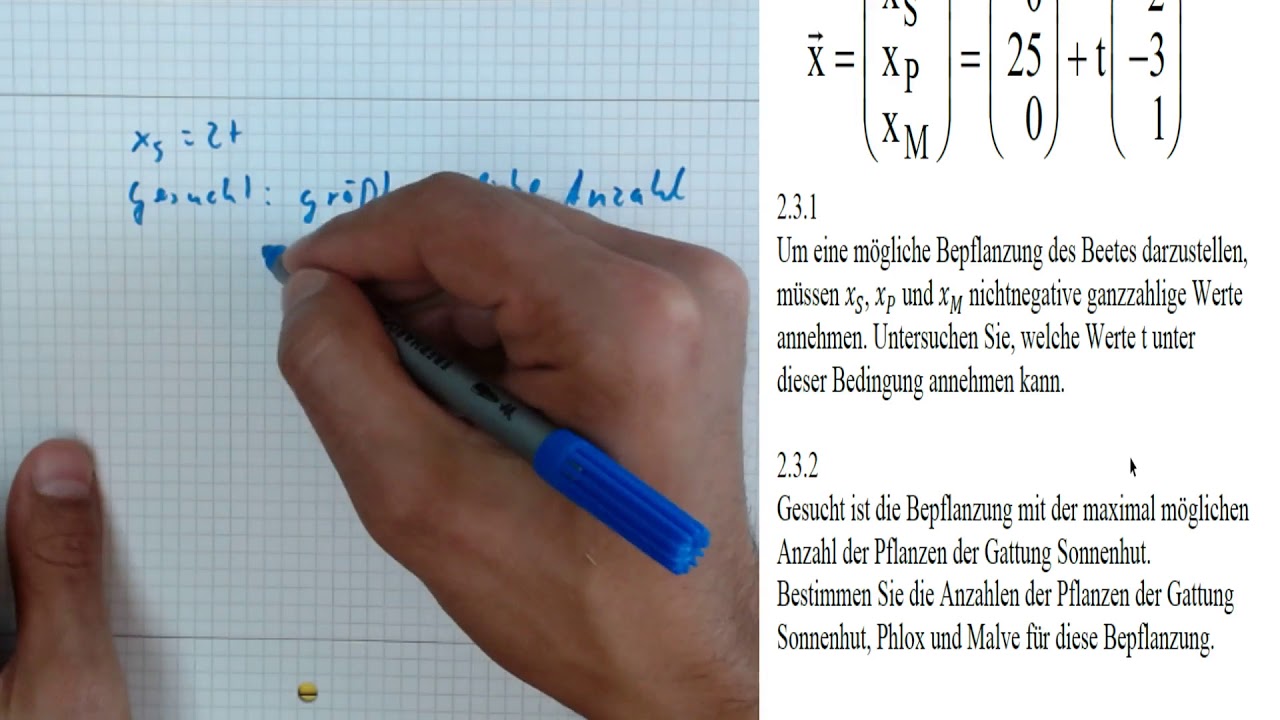 xₛ = 2t
Gesucht: größt Anzahl
x⃗ = ( x_S x_P x_M ) = ( 0 25 0 ) + t ( 2 −3 1 )
2.3.1
Um eine mögliche Bepflanzung des Beetes darzustellen,
müssen x_S, x_P und x_M nichtnegative ganzzahlige Werte
annehmen. Untersuchen Sie, welche Werte t unter
dieser Bedingung annehmen kann.
2.3.2
Gesucht ist die Bepflanzung mit der maximal möglichen
Anzahl der Pflanzen der Gattung Sonnenhut.
Bestimmen Sie die Anzahlen der Pflanzen der Gattung
Sonnenhut, Phlox und Malve für diese Bepflanzung.